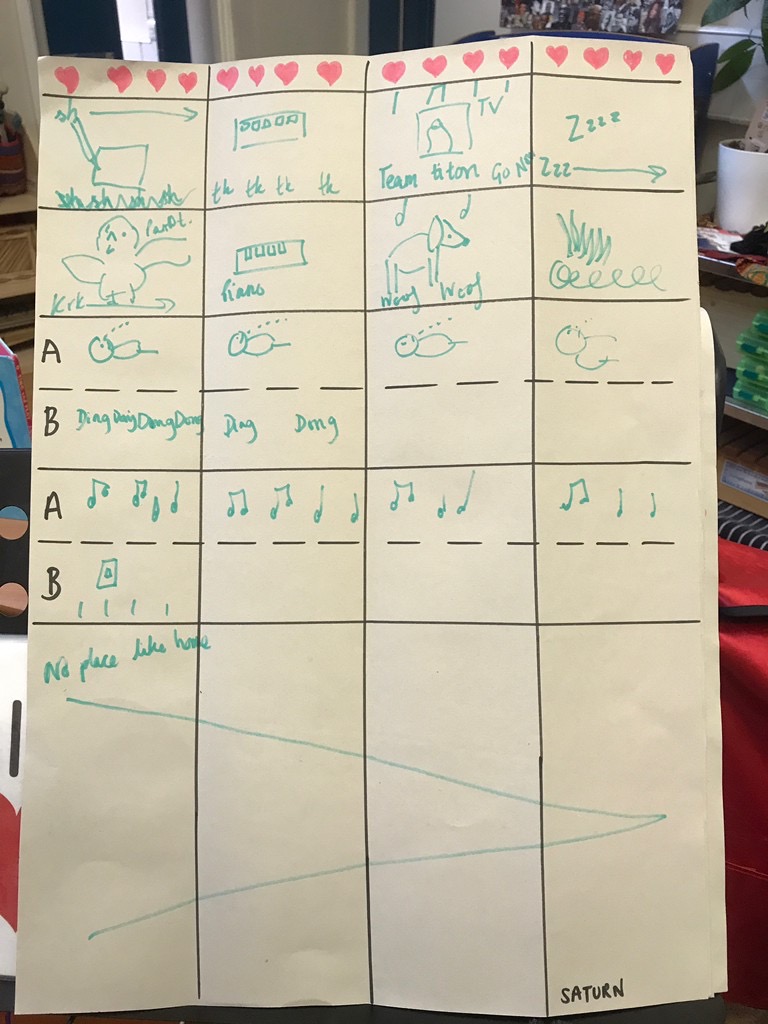 sh
TV
Zzzz
tk tk tk tk
Team titon Go No
Zzz
Parot.
Krk
Piano
Woof Woof
A
B
Ding Dong Dong Dong
Ding Dong
A
B
No place like home
SATURN